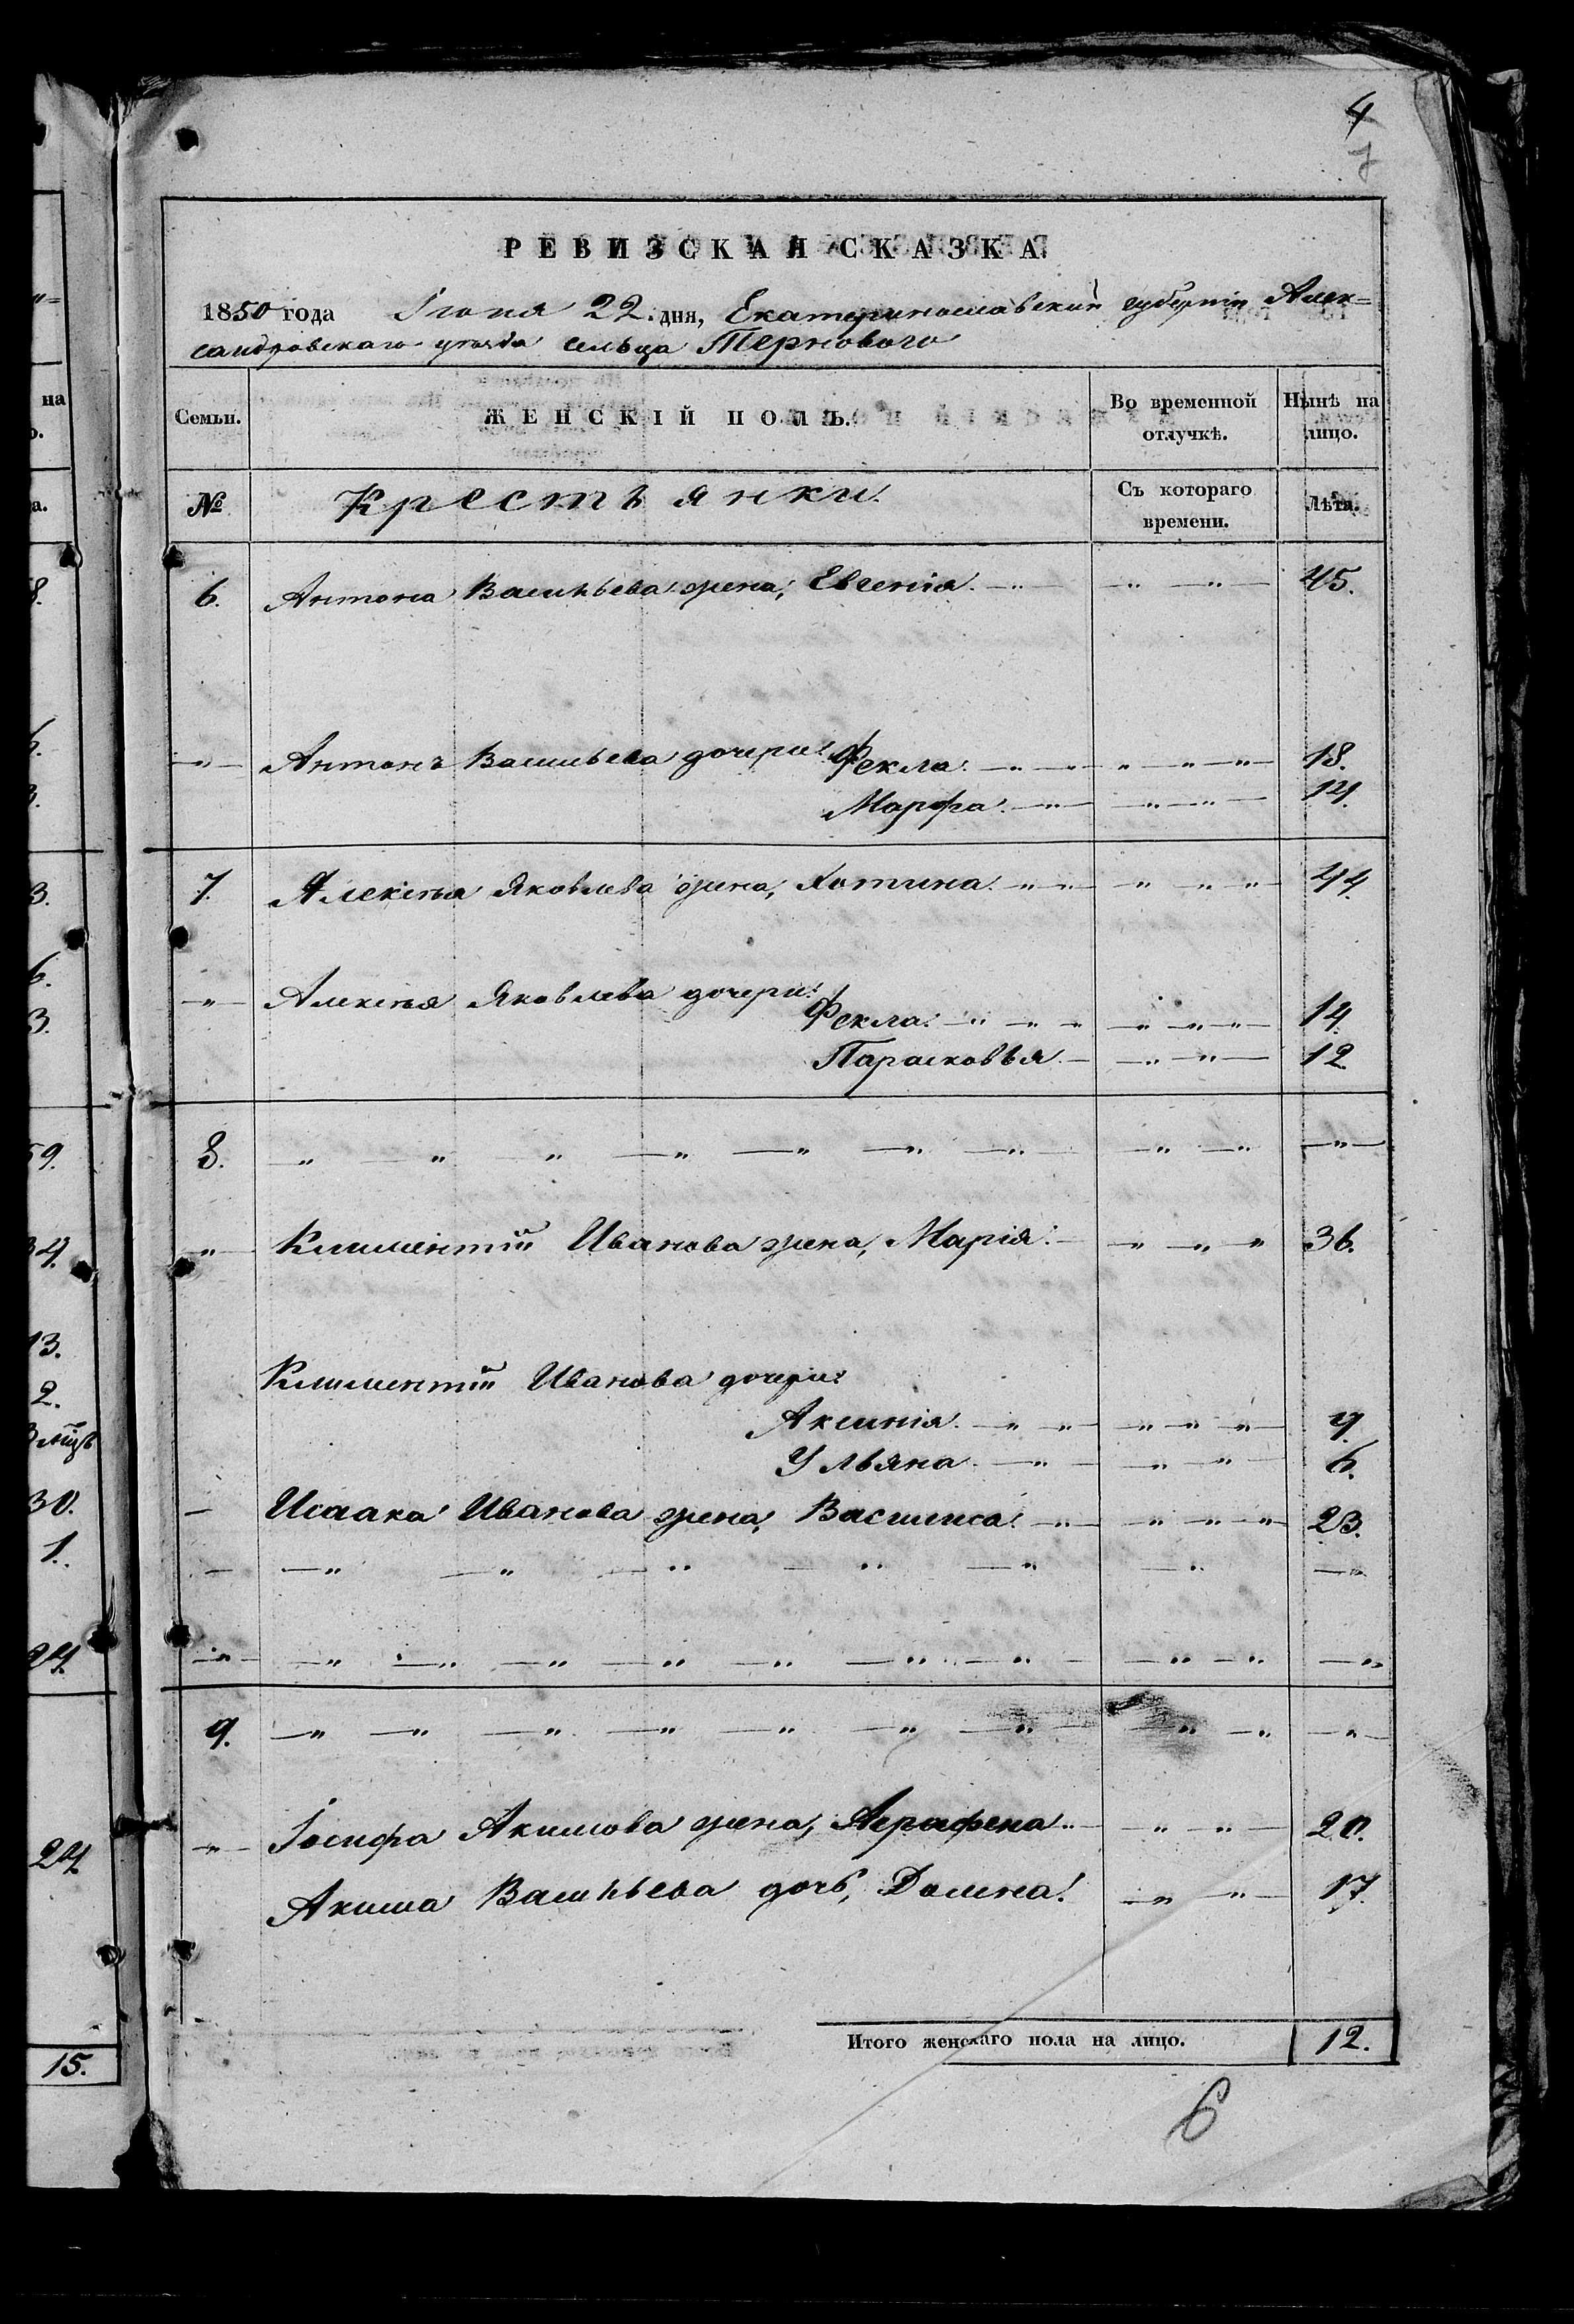 4
7
РЕВИЗСКАЯ СКАЗКА
1850 года Іюня 22. дня, Екатеринославскій губерніи Алек=
сандровскаго уѣзда сельца Терноваго
Семьи. ЖЕНСКІЙ ПОЛЪ. Во временной отлучкѣ. Нынѣ на лицо.
№ Крестьянки. Съ котораго времени. Лѣта.
6. Антона Васильева жена, Евгенія. — " — " — " — 45.
— " — Антона Васильева дочери: Фекла. — " — " — " — " — " — 18.
Марфа. — " — " — " — 14.
7. Алексѣя Яковлева жена, Хотина. — " — " — " — " — " — 44.
— " — Алексѣя Яковлева дочери:
Фекла. — " — " — " — " — " — " — 14.
Парасковья. — " — " — 12
8. — " — " — " — " — " — " — " — " — " — " —
— " — Климентій Иванова жена, Марія. — " — " — " 36.
Климентій Иванова дочери:
Аксинія. — " — " — " — " — " — 9.
Ульяна. — " — " — " — 6.
— Исаака Иванова жена, Василиса. — " — " — " — " — 23.
— — " — " — " — " — " — " — " —
— " — — " — " — " — " — " — " — " — " — " — "
9. — " — " — " — " — " — " — " — " — " — " —
— " — Іосифа Акимова жена, Аграфена. — " — " — 20.
Акима Васильева дочь, Домна. — " — " — 17.
Итого женскаго пола на лицо. 12.
6
на
о.
а.
8.
6.
3.
3.
6.
3.
59.
34.
13.
2.
3 мцъ
30.
1.
24.
24.
15.